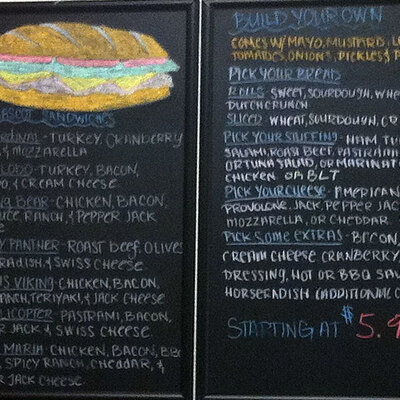 SANDWICHES
TURKEY, CRANBERRY
& MOZZARELLA
TURKEY, BACON,
& CREAM CHEESE
BEAR - CHICKEN, BACON,
RANCH, & PEPPER JACK
PANTHER - ROAST BEEF, OLIVES
& SWISS CHEESE
VIKING - CHICKEN, BACON,
TERIYAKI, & JACK CHEESE
PASTRAMI, BACON,
JACK & SWISS CHEESE
MARIA - CHICKEN, BACON,
SPICY RANCH, CHEDDAR, &
JACK CHEESE
BUILD YOUR OWN
COMES W/ MAYO, MUSTARD,
TOMATOES, ONIONS, PICKLES &
PICK YOUR BREAD
ROLLS SWEET, SOURDOUGH,
DUTCHCRUNCH
SLICED WHEAT, SOURDOUGH,
PICK YOUR STUFFING - HAM
SALAMI, ROAST BEEF,
OR TUNA SALAD, OR
CHICKEN OR BLT
PICK YOUR CHEESE - AMERICAN
PROVOLONE, JACK, PEPPER JAC
MOZZARELLA, OR CHEDDAR
PICK SOME EXTRAS - BACON,
CREAM CHEESE CRANBERRY
DRESSING, HOT OR BBQ
HORSERADISH (ADDITIONAL
STARTING AT $5.9